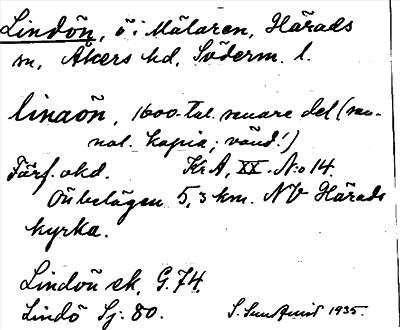 Lindön, ö i Mälaren, Härads
sn, Åkers hd, Söderm. l.
linaön, 1600-tal. senare del (sen.
nat. kopia; vänd!)
Förf. okd. Kr A, XX. N:o 14.
Ön belägen 5,3 km. NV Härads
kyrka.
Lindön ek. G. 74.
Lindö Sj: 80. S. Sundqvist 1935.